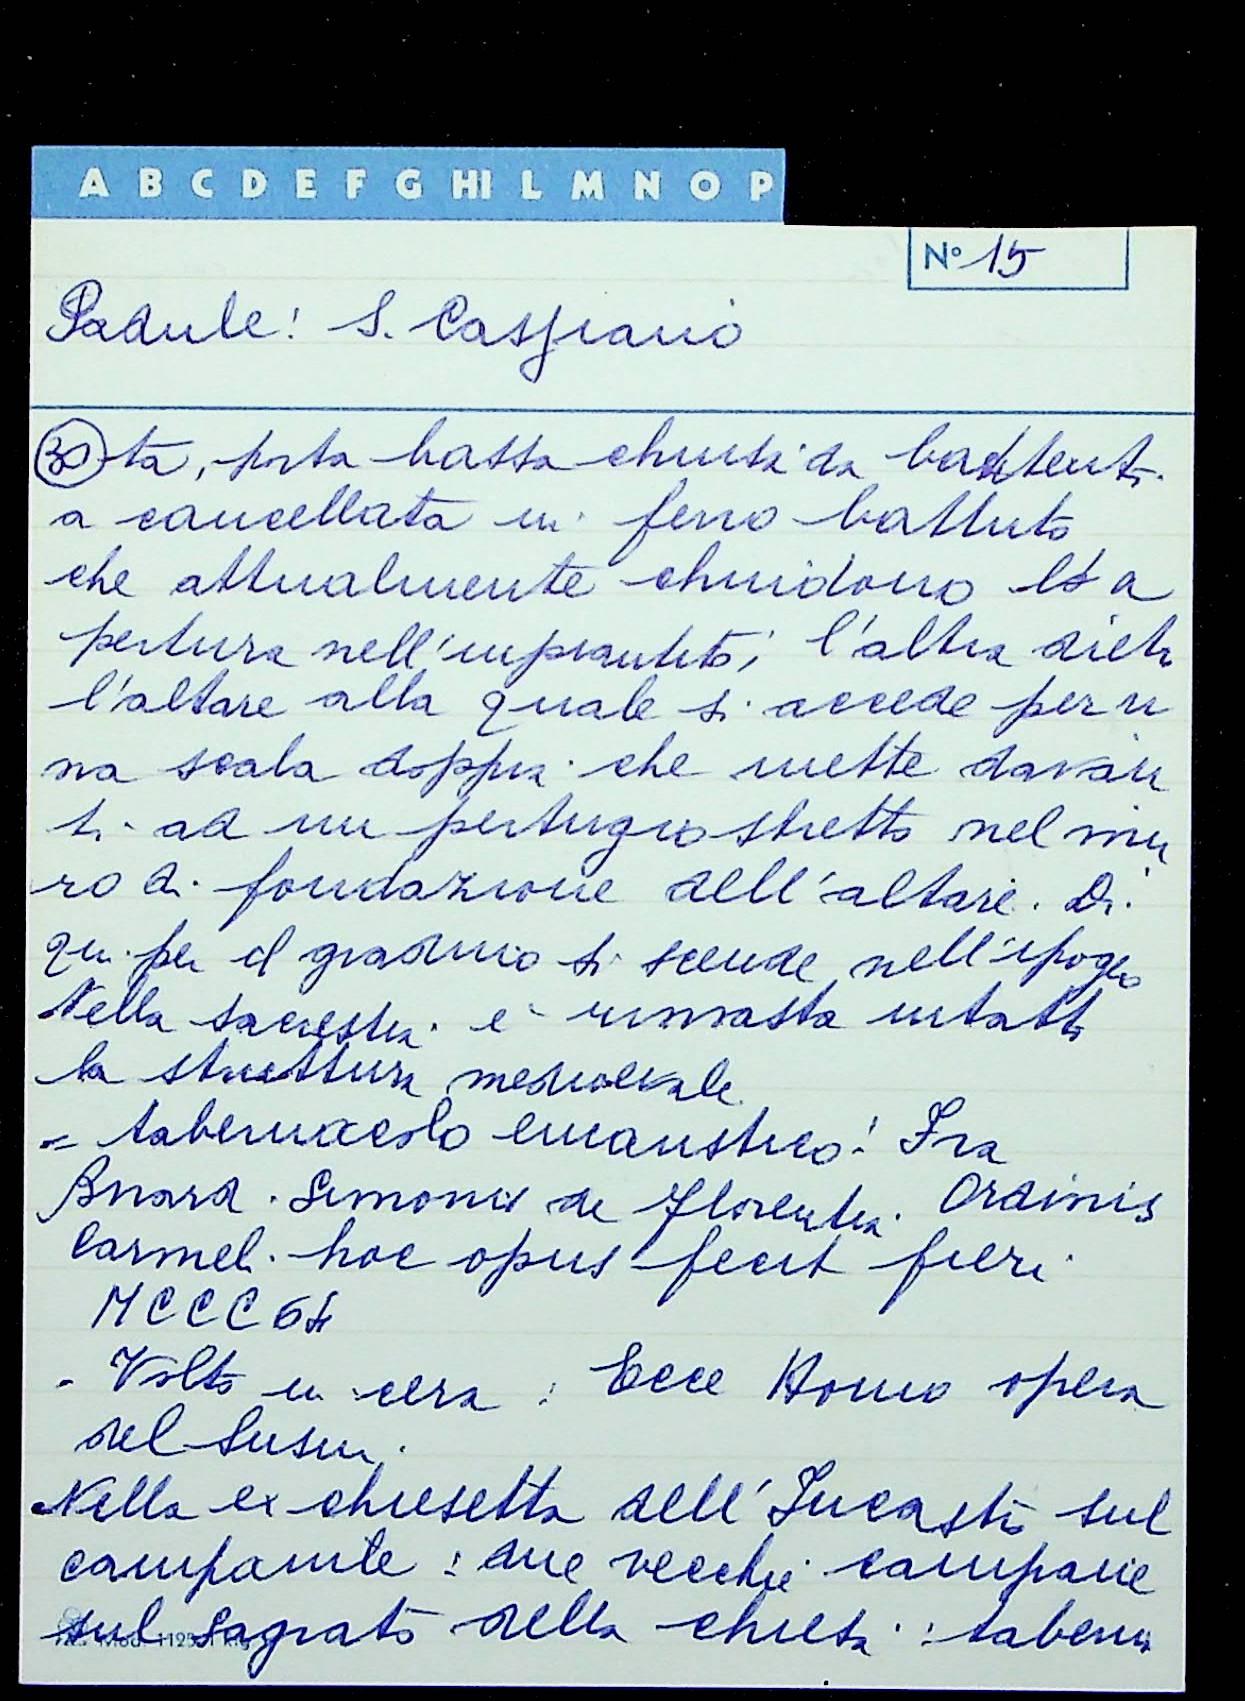 A B C D E F G HI L M N O P
N° 15
Padule: S. Cassiano
30 ta, porta bassa chiusa da battenti
a cancellata in ferro battuto
che attualmente chiudono l'a
pertura nell'impiantito; l'altra dietro
l'altare alla quale si accede per u
na scala doppia che mette davan
ti ad un pertugio stretto nel mu
ro di fondazione dell'altare. Di
qui per il gradino si scende nell'ipogeo
Nella sacrestia è rimasta intatta
la struttura medioevale.
= tabernacolo eucaristico: Fra
Bnard. Simonis de Florentia. Ordinis
Carmel. hoc opus fecit fieri
- Volto in cera: Ecce Homo opera
del Susini.
Nella ex chiesetta dell' sul
campanile: due vecchie campane
sul sagrato della chiesa: taberna